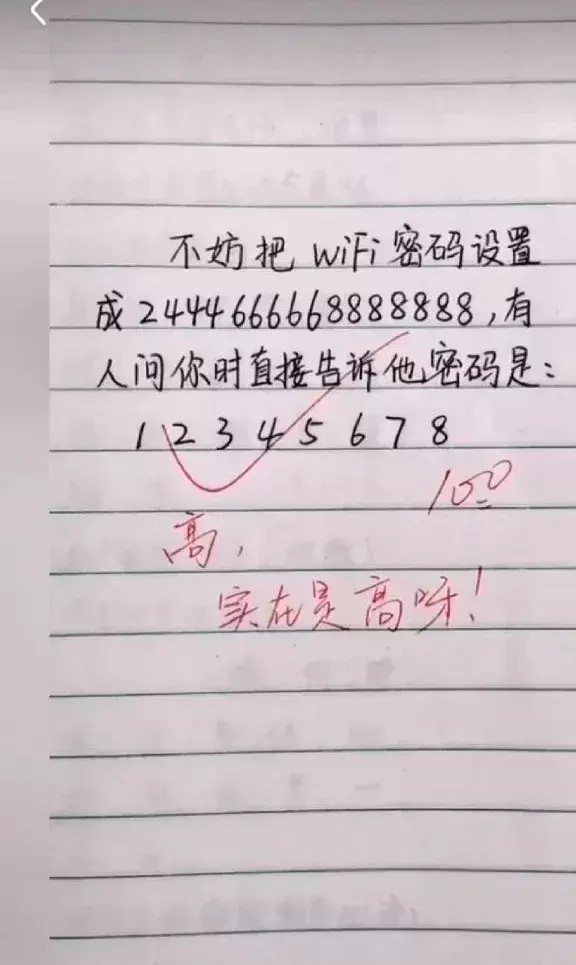 不妨把WiFi密码设置
成2444666668888888,有
人问你时直接告诉他密码是:
1 2 3 4 5 6 7 8
100
高,
实在是高呀!